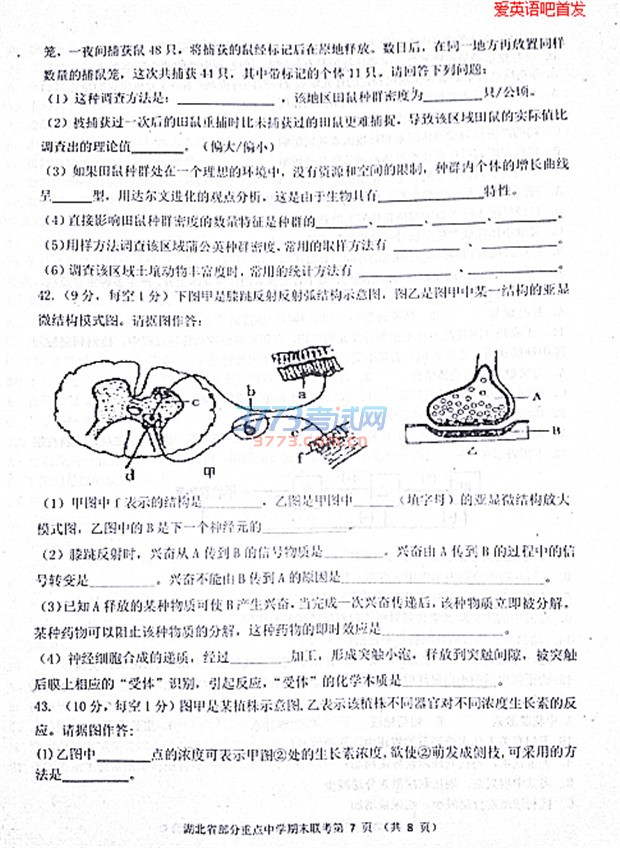 爱英语吧首发
笼,一夜间捕获鼠48只,将捕获的鼠经标记后在原地释放。数日后,在同一地方再放置同样
数量的捕鼠笼,这次共捕获41只,其中带标记的个体11只。请回答下列问题:
(1)这种调查方法是:____________,该地区田鼠种群密度为________只/公顷。
(2)被捕获过一次后的田鼠重捕时比未捕获过的田鼠更难捕捉,导致该区域田鼠的实际值比
调查出的理论值________。(偏大/偏小)
(3)如果田鼠种群处在一个理想的环境中,没有资源和空间的限制,种群内个体的增长曲线
呈______型,用达尔文进化的观点分析,这是由于生物具有____________特性。
(4)直接影响田鼠种群密度的数量特征是种群的____________、____________。
(5)用样方法调查该区域蒲公英种群密度,常用的取样方法有________、________。
(6)调查该区域土壤动物丰富度时,常用的统计方法有____________、____________。
42.(9分,每空1分)下图甲是膝跳反射反射弧结构示意图,图乙是图甲中某一结构的亚显
微结构模式图。请据图作答:
b
a
c
A
3773考试网
3773.com.cn
B
f
乙
d
甲
(1)甲图中f表示的结构是________,乙图是甲图中______(填字母)的亚显微结构放大
模式图,乙图中的B是下一个神经元的____________。
(2)膝跳反射时,兴奋从A传到B的信号物质是________。兴奋由A传到B的过程中的信
号转变是________。兴奋不能由B传到A的原因是____________。
(3)已知A释放的某种物质可使B产生兴奋,当完成一次兴奋传递后,该种物质立即被分解。
某种药物可以阻止该种物质的分解,这种药物的即时效应是____________。
(4)神经细胞合成的递质,经过________加工,形成突触小泡,释放到突触间隙,被突触
后膜上相应的“受体”识别,引起反应,“受体”的化学本质是____________。
43.(10分,每空1分)图甲是某植株示意图,乙表示该植株不同器官对不同浓度生长素的反
应。请据图作答:
(1)乙图中________点的浓度可表示甲图②处的生长素浓度,欲使②萌发成侧枝,可采用的方
法是________。
湖北省部分重点中学期末联考第 7 页 (共 8 页)